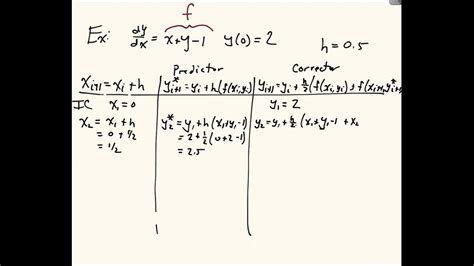 f
Ex: dy/dx = x+y-1 y(0) = 2 h = 0.5
Predictor Corrector
x_{i+1} = x_i + h y*_{i+1} = y_i + h(f(x_i,y_i)) y_{i+1} = y_i + h/2 (f(x_i,y_i) + f(x_{i+1},y*_{i+1}
IC x_1 = 0 y_1 = 2
x_2 = x_1 + h y_2* = y_1 + h(x_1+y_1-1) y_2 = y_1 + h/2 (x_1 + y_1 -1 + x_2
= 0 + 1/2 = 2 + 1/2 (0+2-1)
= 1/2 = 2.5